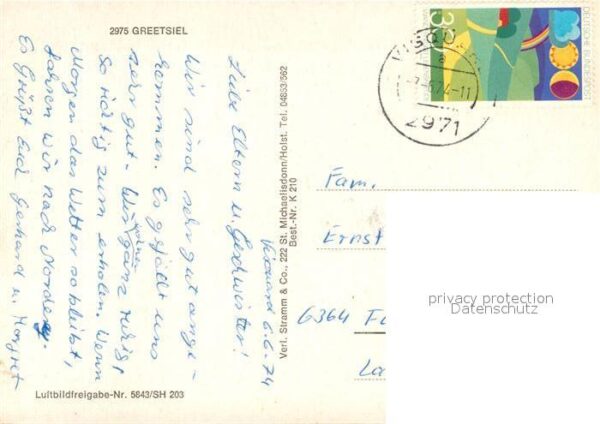 2975 GREETSIEL
Visquard 6.6.74
Liebe Eltern u. Geschwister!
Wir sind sehr gut ange-
kommen. Es gefällt uns
sehr gut - Wir wohnen
ganz ruhig
so richtig zum erholen. Wenn
Morgen das Wetter so bleibt,
fahren wir nach Norderney.
Es Grüßt Euch Gerhard u. Margret
Luftbildfreigabe-Nr. 5643/SH 203
Verl. Stramm & Co., 222 St. Michaelisdonn/Holst. Tel. 04853/562
Best.-Nr. K 210
30
DEUTSCHE BUNDESPOST
a
-7.-6.74-11
2971
Fam.
Ernst
6364
privacy protection
Datenschutz